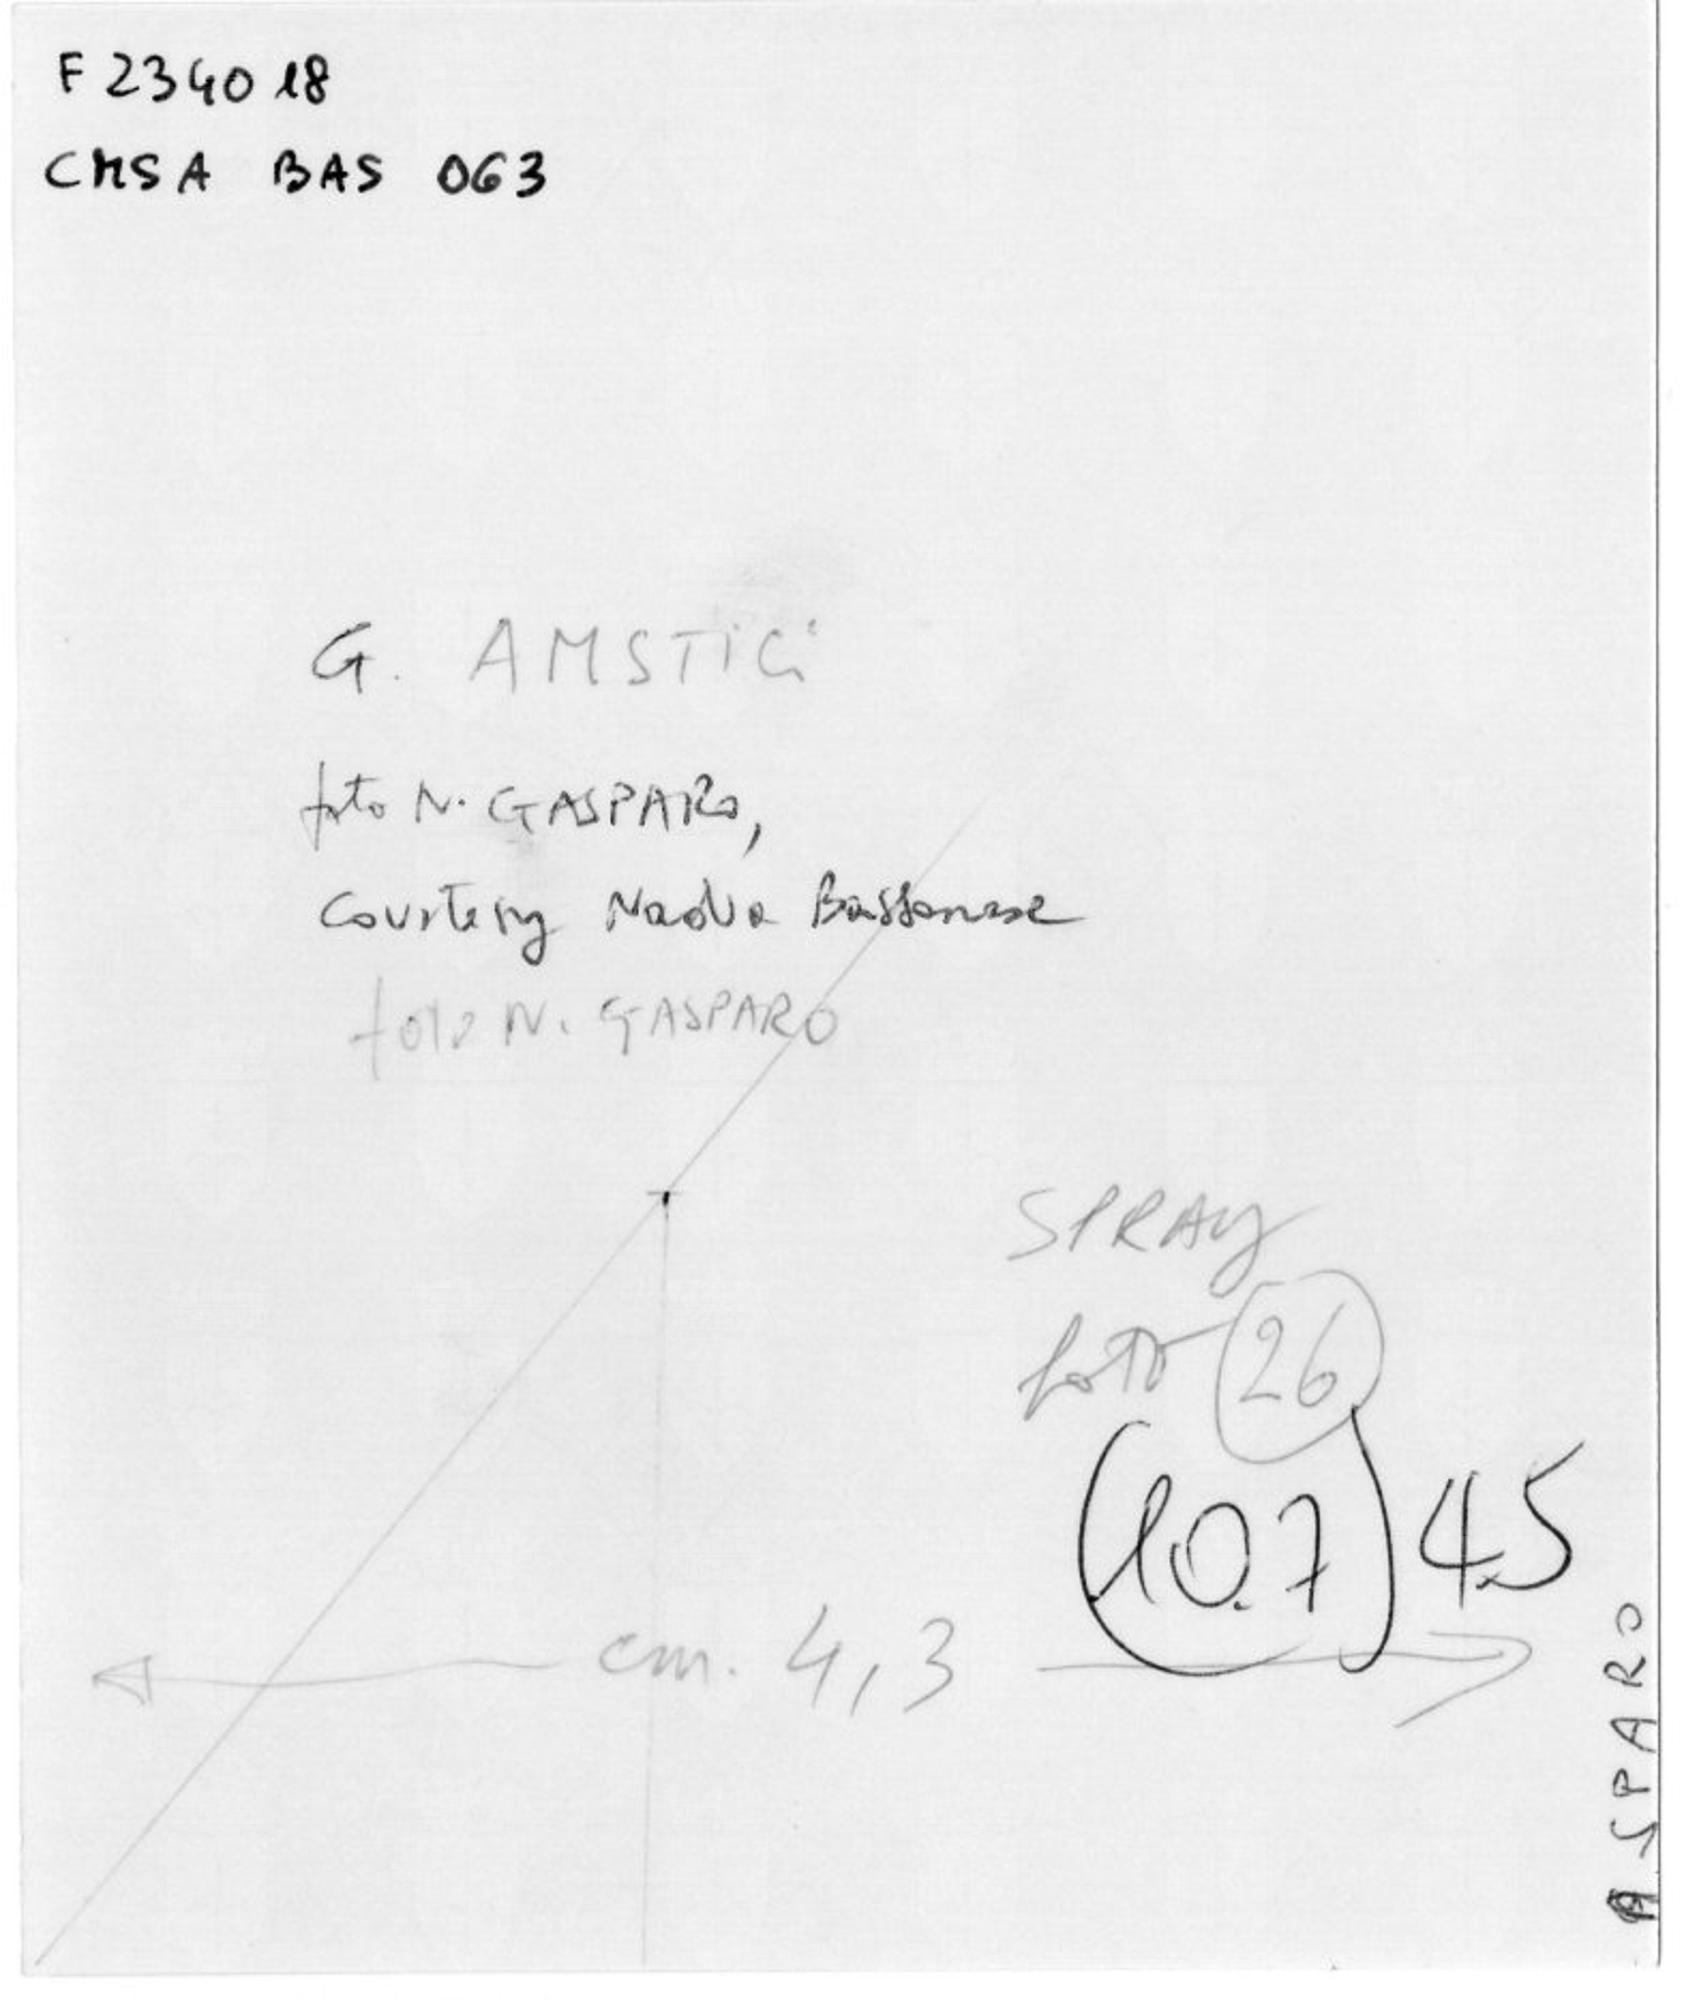 F 234018
CMSA BAS 063
G. AMSTICI
foto N. GASPARO,
Courtesy Nadia Bassanese
foto N. GASPARO
SPRAY
foto 26
(10.7) 4.5
cm. 4,3
ASPARO